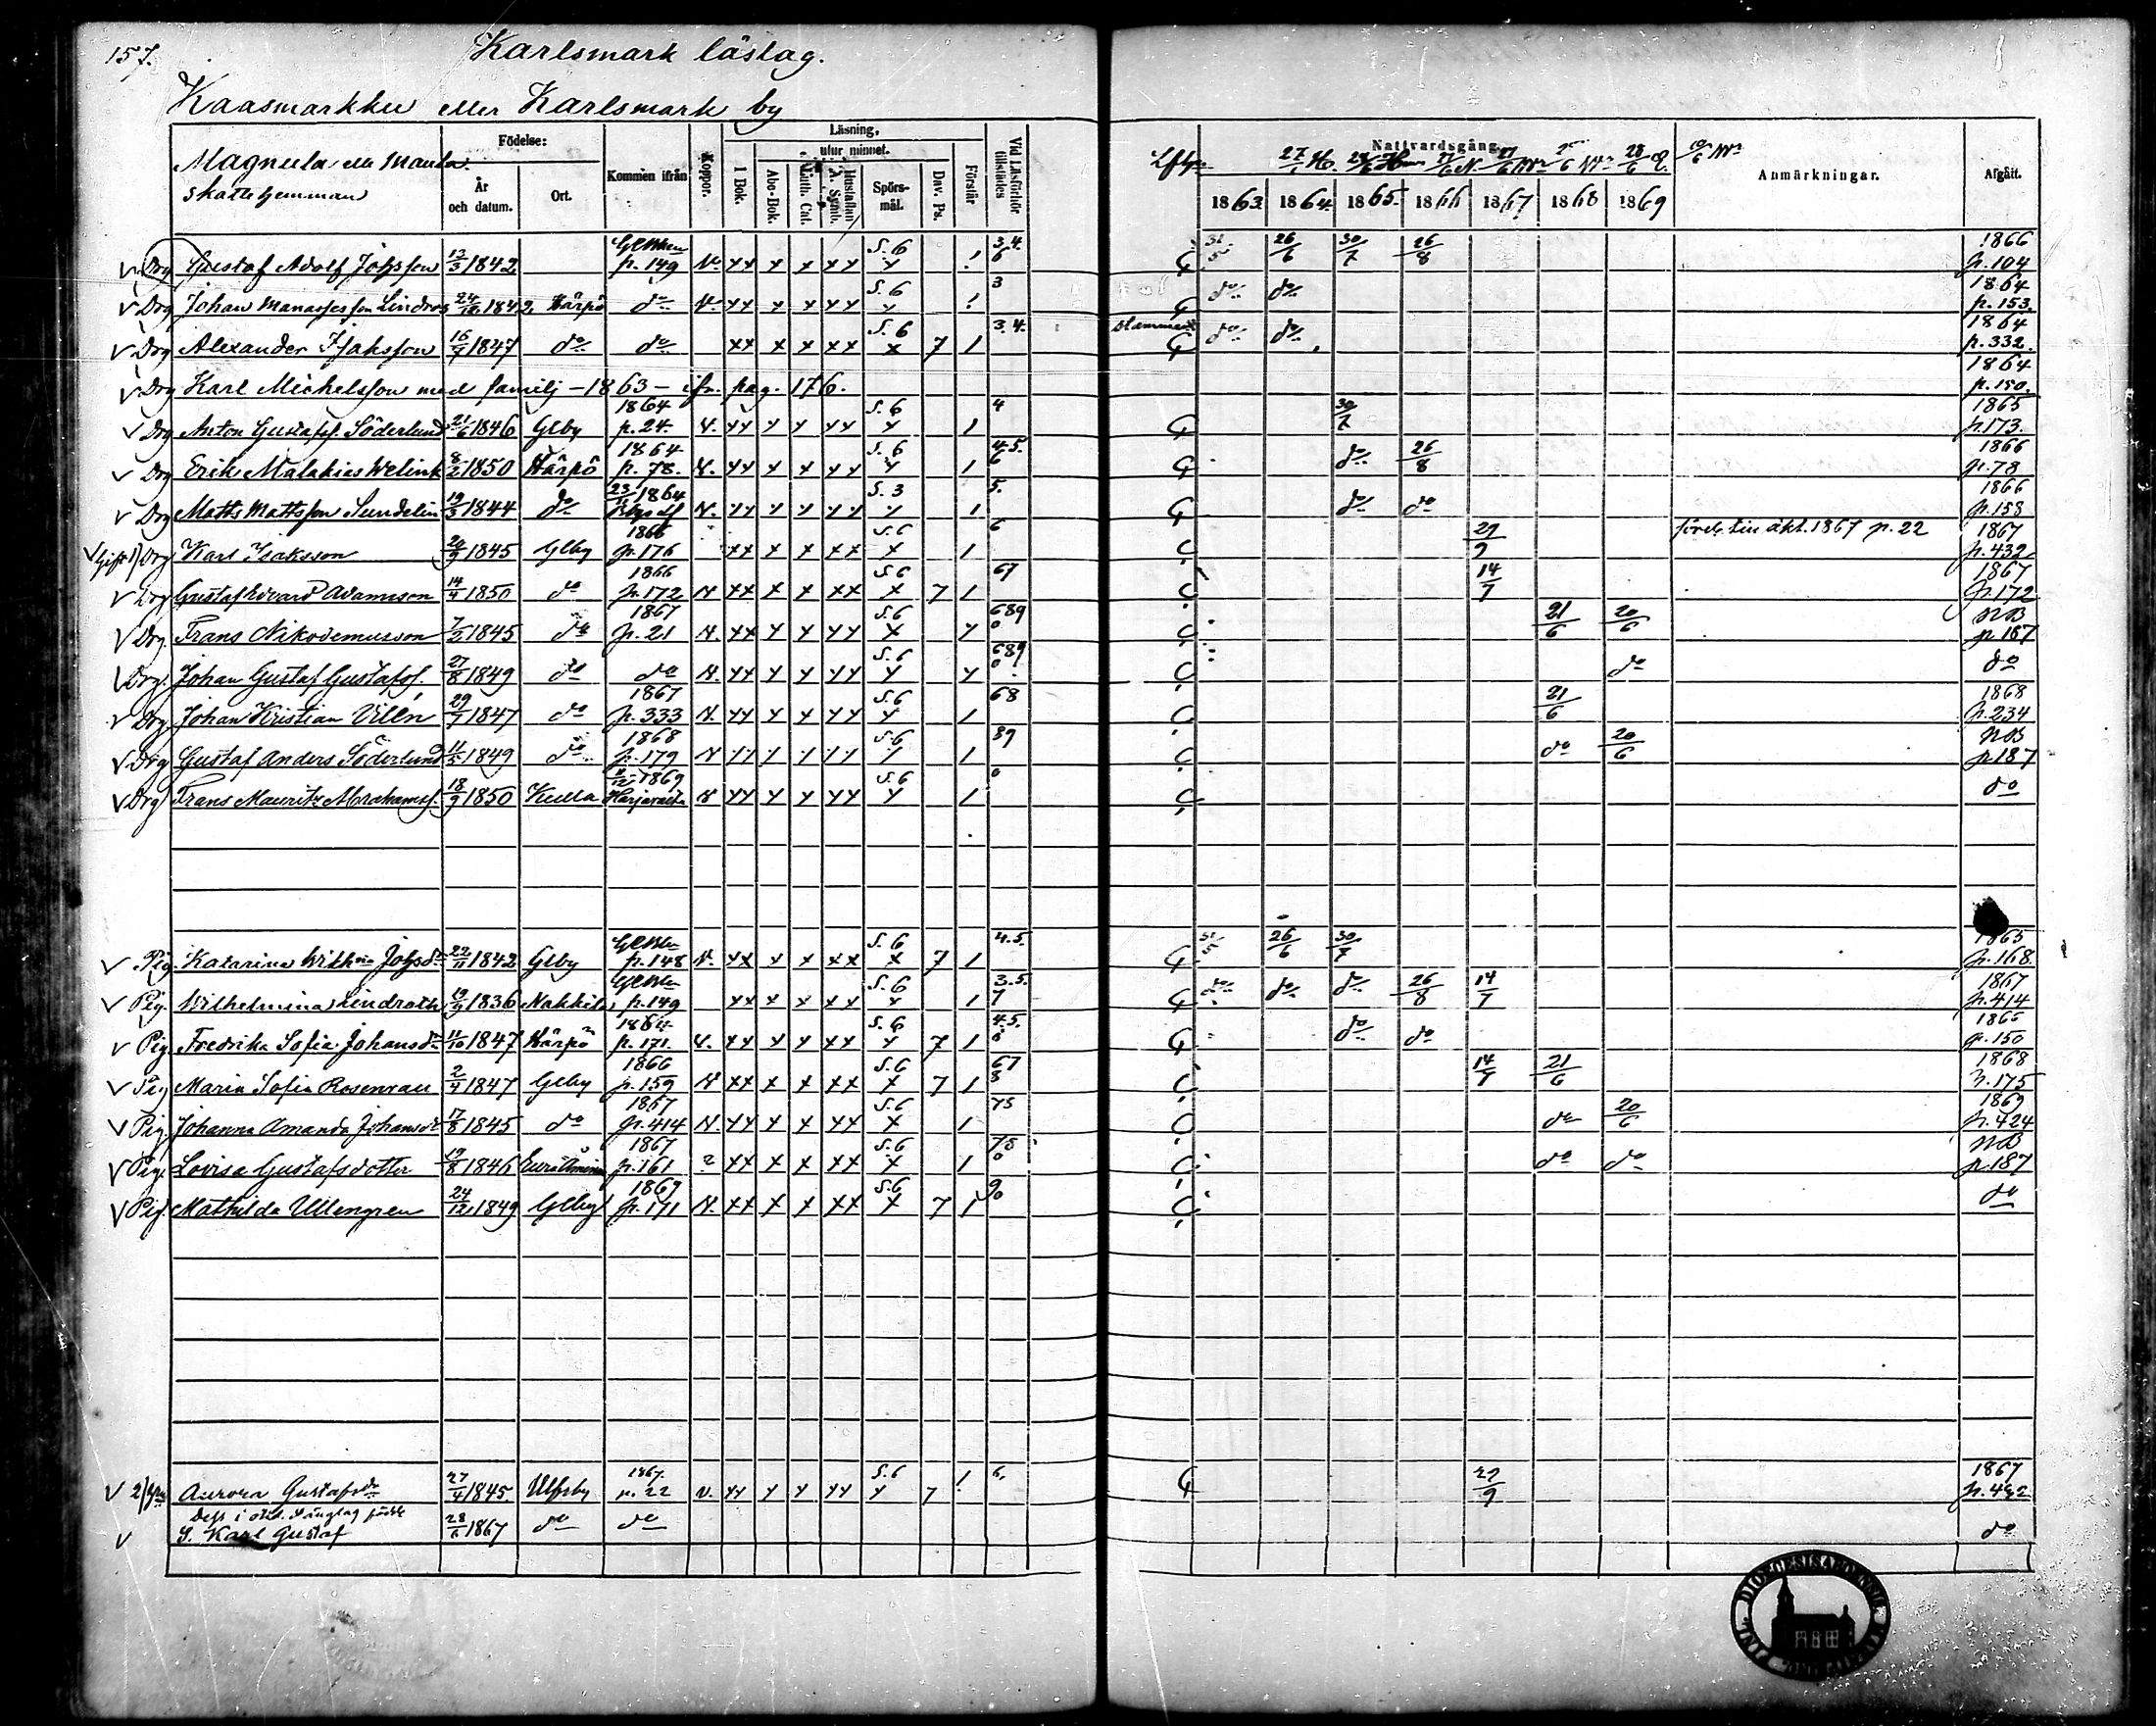 157.
Karlsmark läslag.
Kaasmarkku eller Karlsmark by
Magnula eller Maula
skattehemman
Födelse:
År och datum.
Ort.
Kommen ifrån
Koppor.
Läsning,
utur minnet.
I Bok.
Abc-Bok.
Luth. Cat.
Hustaflan A. Symb.
Spörsmål.
Dav. Ps.
Förstår
Vid Läsförhör tillstädes
Nattvardsgång.
1863. 1864. 1865. 1866 1867 1868 1869
Anmärkningar.
Afgått.
Drg Gustaf Adolf Johsson 13/3 1842 p. 149 V. xx x x xx S. 6 x 1 3.4. 6 31/5 26/6 30/7 26/8 1866 p. 104
Drg Johan Manassesson Lindros 1842 Härpö do V. xx x x xx S. 6 x 1 3 do do 1864 p. 153.
Drg Alexander Isaksson 1847 do do xx x x xx S. 6 x 7 1 3.4. stammar do do 1864 p. 332.
Drg Karl Mickelsson med familj – 1863 – jfr. pag. 176. 1864 p. 150.
Drg Anton Gustafss. Söderlund 21/6 1846 Glby 1864 p. 24. V. xx x x xx S. 6 x 1 4 30/7 1865 p. 173.
Drg Erik Malakias Welink 8/2 1850 Härpö 1864 p. 78. V. xx x x xx S. 6 x 1 4.5. 6 do 26/8 1866 p. 78
Drg Matts Mattsson Sundelin 19/3 1844 do 23/11 1864 V. xx x x xx S. 3 x 1 5. do do 1866 p. 158
Gift 1) Drg Karl Isaksson 20/9 1845 Glby 1866 p. 176 xx x x xx S. 6 x 1 6 29/9 1867 p. 22 1867 p. 432
Drg Gustaf Edvard Adamsson 14/4 1850 do 1866 p. 172 N xx x x xx S 6 x 7 1 67 14/7 1867 p. 172
Drg. Frans Nikodemusson 7/2 1845 do 1867 p. 21 N. xx x x xx S. 6 x x 689 0 21/6 20/6 NB p. 187
Drg. Johan Gustaf Gustafss. 27/8 1849 do do N. xx x x xx S. 6 x x 689 0 do do
Drg Johan Kristian Villn 29/7 1847 do 1867 p. 333 N. xx x x xx S. 6 x 1 68 21/6 1868 p. 234
Drg Gustaf Anders Söderlund 11/5 1849 do 1868 p. 179 N xx x x xx S. 6 x 1 89 do 20/6 NB p. 187
Drg Frans Mauritz Abrahamss. 18/9 1850 Kulla 1869 Harjavalta N xx x x xx S. 6 x 1 0 do
Pig. Katarina Wilhna Johsdr 22/11 1842 Glby p. 148 V. xx x x xx S. 6 x 7 1 4.5. 31/5 26/6 30/7 1865 p. 168
Pig. Wilhelmina Lindroth 19/9 1836 Nakkila p. 149 xx x x xx S. 6 x 1 3.5. 7 do do do 26/8 14/7 1867 p. 414
Pig. Fredrika Sofia Johansdr 11/10 1847 Härpö 1864 p. 171. V. xx x x xx S. 6 x 7 1 4.5. 6 do do 1865 p. 150
Pig Maria Sofia Rosenrau 2/4 1847 Glby 1866 p. 159 N xx x x xx S. 6 x 7 1 67 8 14/7 21/6 1868 p. 175
Pig. Johanna Amanda Johansdr 17/8 1845 do 1867 p. 414 N. xx x x xx S. 6 x 1 75 do 20/6 1869 p. 424
Pig. Lovisa Gustafsdotter 19/8 1846 Eura 1867 p. 161 ? xx x x xx S. 6 x 1 78 0 do do NB p. 187
Pig. Mathilda Ullengren 24/12 1849 Glby 1869 p. 171 N. xx x x xx S. 6 x 7 1 9 0 do
2) Aurora Gustafsdr 27/4 1845. Ulfsby 1867. p. 22 V. xx x x xx S. 6 x 7 1 6. 29/9 1867 p. 432
Dess i sänglag född
S. Karl Gustaf 28/6 1867 do do do
DIOECESIS ABOENSIS